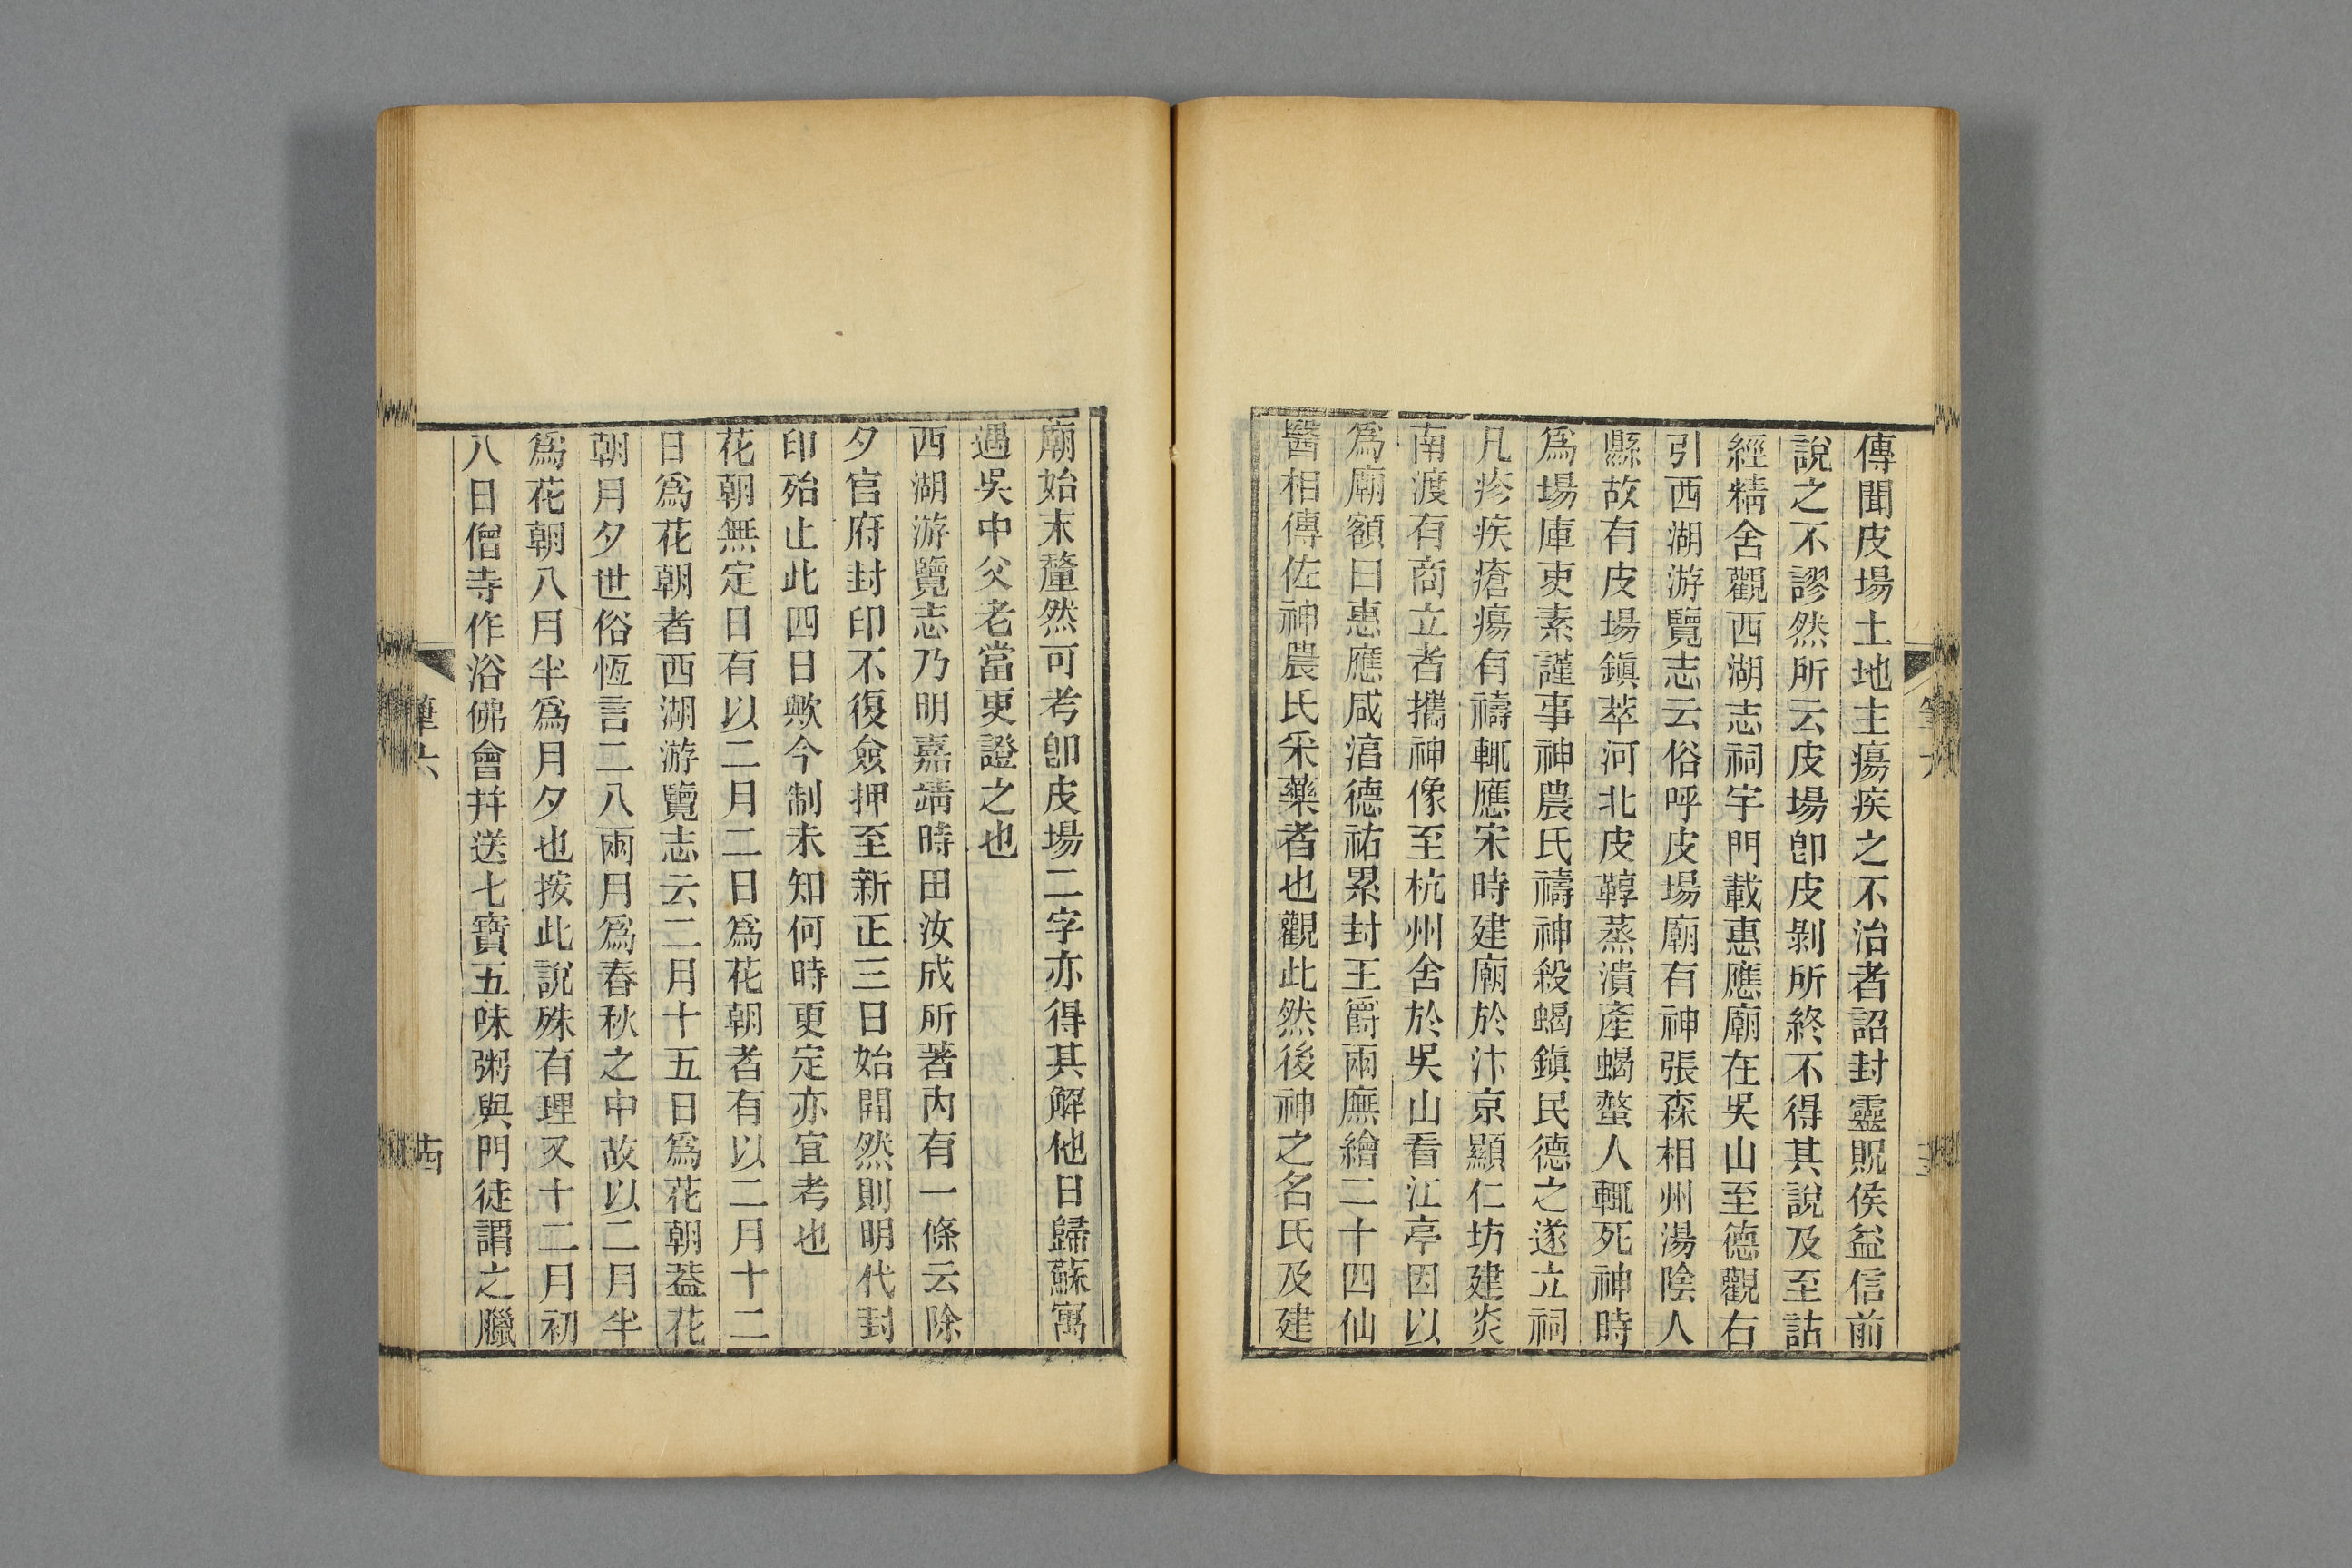 傳聞皮場土地主瘍疾之不治者詔封靈貺侯益信前
說之不謬然所云皮場卽皮剝所終不得其說及至詁
經精舍觀西湖志祠宇門載惠應廟在吳山至德觀右
引西湖游覽志云俗呼皮場廟有神張森相州湯陰人
縣故有皮場鎮萃河北皮鞟蒸潰產蝎螫人輒死神時
爲場庫吏素謹事神農氏禱神殺蝎鎮民德之遂立祠
凡疹疾瘡瘍有禱輒應宋時建廟於汴京顯仁坊建炎
南渡有商立者攜神像至杭州舍於吳山看江亭因以
爲廟額曰惠應咸湻德祐累封王爵兩廡繪二十四仙
醫相傳佐神農氏采藥者也觀此然後神之名氏及建
廟始末釐然可考卽皮場二字亦得其解他日歸蘇寓
遇吳中父老當更證之也
西湖游覽志乃明嘉靖時田汝成所著內有一條云除
夕官府封印不復僉押至新正三日始開然則明代封
印殆止此四日歟今制未知何時更定亦宜考也
花朝無定日有以二月二日爲花朝者有以二月十二
日爲花朝者西湖游覽志云二月十五日爲花朝葢花
朝月夕世俗恆言二八兩月爲春秋之中故以二月半
爲花朝八月半爲月夕也按此說殊有理又十二月初
八日僧寺作浴佛會幷送七寶五味粥與門徒謂之臘
筆六
十四